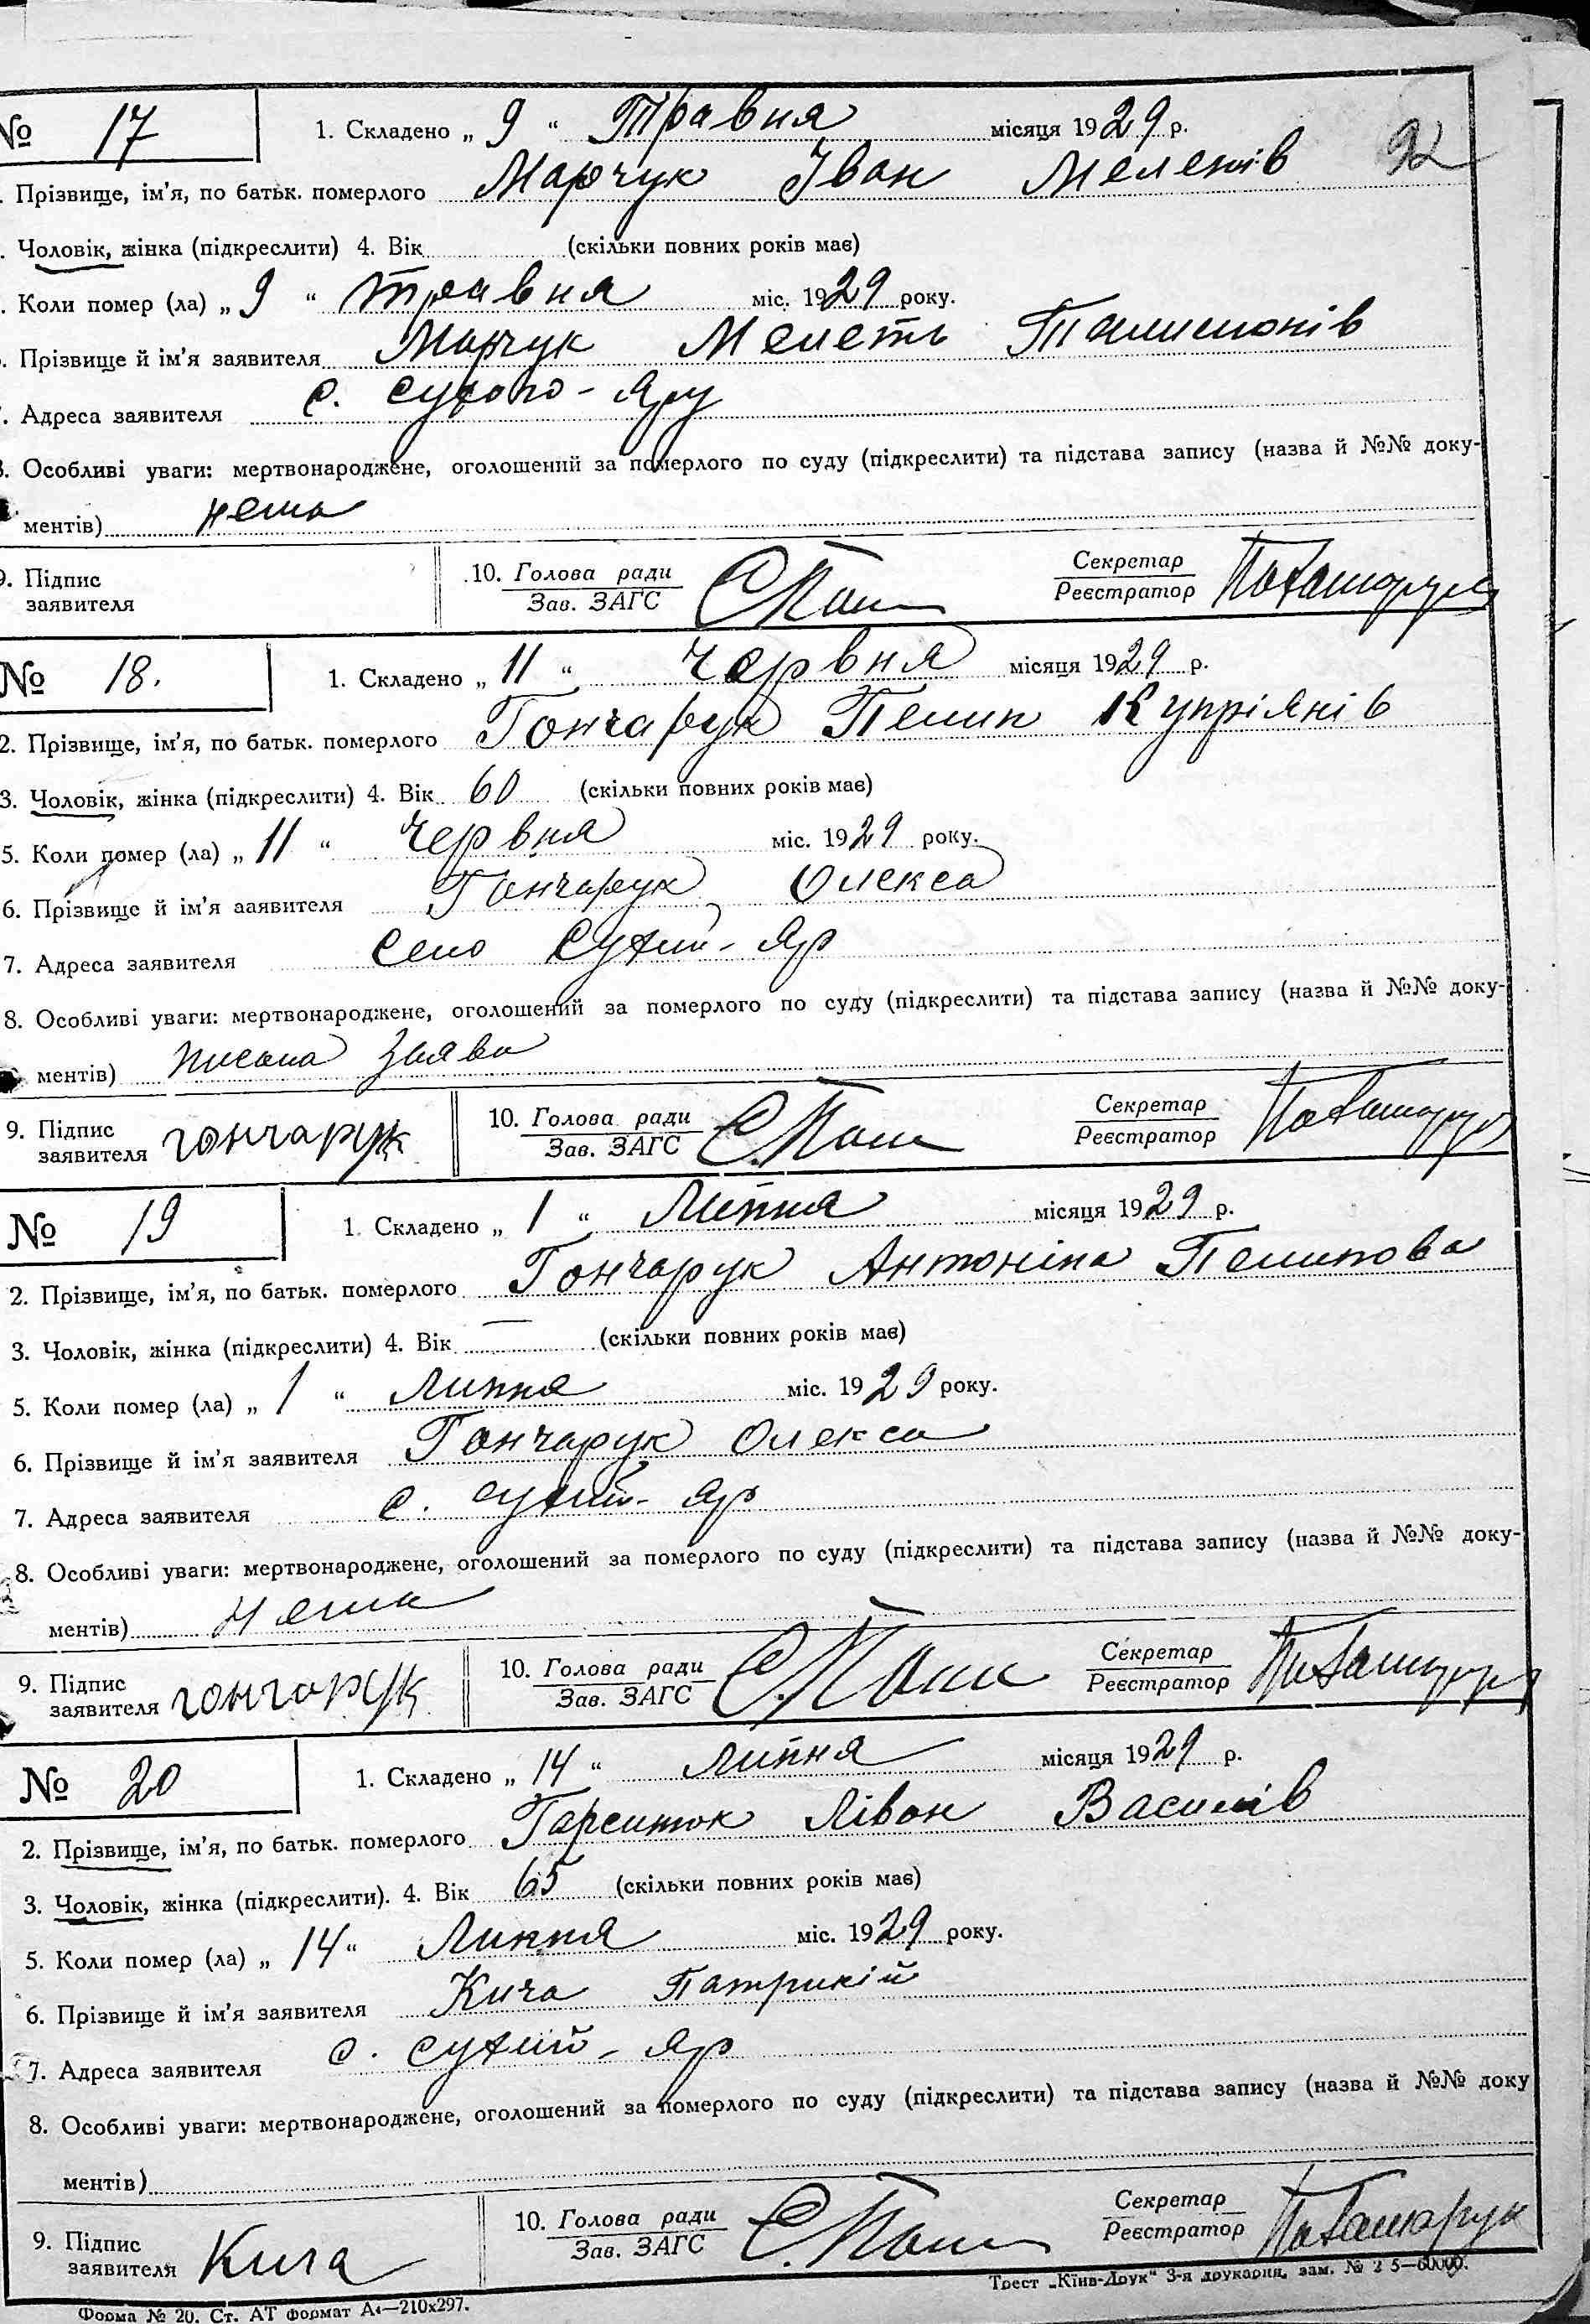 № 17 1. Складено „ 9 “ Травня місяця 1929 р.
92
. Прізвище, ім'я, по батьк. померлого Марчук Іван Мелетів
. Чоловік, жінка (підкреслити) 4. Вік (скільки повних років має)
. Коли помер (ла) „ 9 “ травня міс. 1929 року.
. Прізвище й ім'я заявителя Марчук Мелеть
. Адреса заявителя с. Сухого-Яру
8. Особливі уваги: мертвонароджене, оголошений за померлого по суду (підкреслити) та підстава запису (назва й №№ доку-
ментів) нема
9. Підпис заявителя 10. Голова ради Зав. ЗАГС Секретар Реєстратор
№ 18. 1. Складено „ 11 “ червня місяця 1929 р.
2. Прізвище, ім'я, по батьк. померлого Гончарук Пелип Купріянів
3. Чоловік, жінка (підкреслити) 4. Вік 60 (скільки повних років має)
5. Коли помер (ла) „ 11 “ червня міс. 1929 року.
6. Прізвище й ім'я ааявителя Гончарук Олекса
7. Адреса заявителя село Сухий-Яр
8. Особливі уваги: мертвонароджене, оголошений за померлого по суду (підкреслити) та підстава запису (назва й №№ доку-
ментів) писана заява
9. Підпис заявителя гончарук 10. Голова ради Зав. ЗАГС Секретар Реєстратор
№ 19 1. Складено „ 1 “ Липня місяця 1929 р.
2. Прізвище, ім'я, по батьк. померлого Гончарук Антоніна Пелипова
3. Чоловік, жінка (підкреслити) 4. Вік — (скільки повних років має)
5. Коли помер (ла) „ 1 “ липня міс. 1929 року.
6. Прізвище й ім'я заявителя Гончарук Олекса
7. Адреса заявителя с. Сухий-Яр
8. Особливі уваги: мертвонароджене, оголошений за померлого по суду (підкреслити) та підстава запису (назва й №№ доку-
ментів) нема
9. Підпис заявителя гончарук 10. Голова ради Зав. ЗАГС Секретар Реєстратор
№ 20 1. Складено „ 14 “ липня місяця 1929 р.
2. Прізвище, ім'я, по батьк. померлого Лівон Василів
3. Чоловік, жінка (підкреслити). 4. Вік 65 (скільки повних років має)
5. Коли помер (ла) „ 14 “ Липня міс. 1929 року.
6. Прізвище й ім'я заявителя Кича Патрикій
7. Адреса заявителя с. Сухий-Яр
8. Особливі уваги: мертвонароджене, оголошений за померлого по суду (підкреслити) та підстава запису (назва й №№ доку
ментів)
9. Підпис заявителя Кича 10. Голова ради Зав. ЗАГС Секретар Реєстратор
Форма № 20. Ст. АТ формат А4—210х297. Трест „Київ-Друк“ 3-я друкарня, зам. №